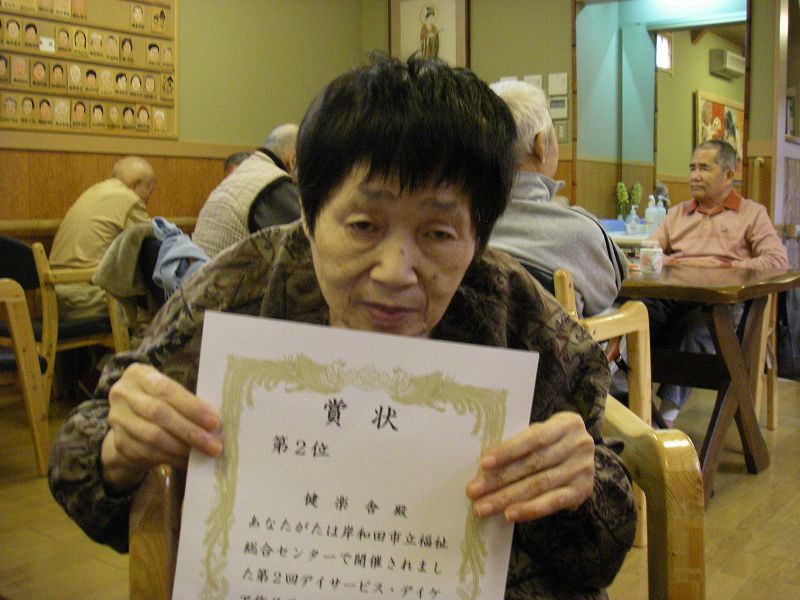 賞状
第2位
健楽舎 殿
あなたがたは岸和田市立福祉
総合センターで開催されまし
た第2回デイサービス・デイケ